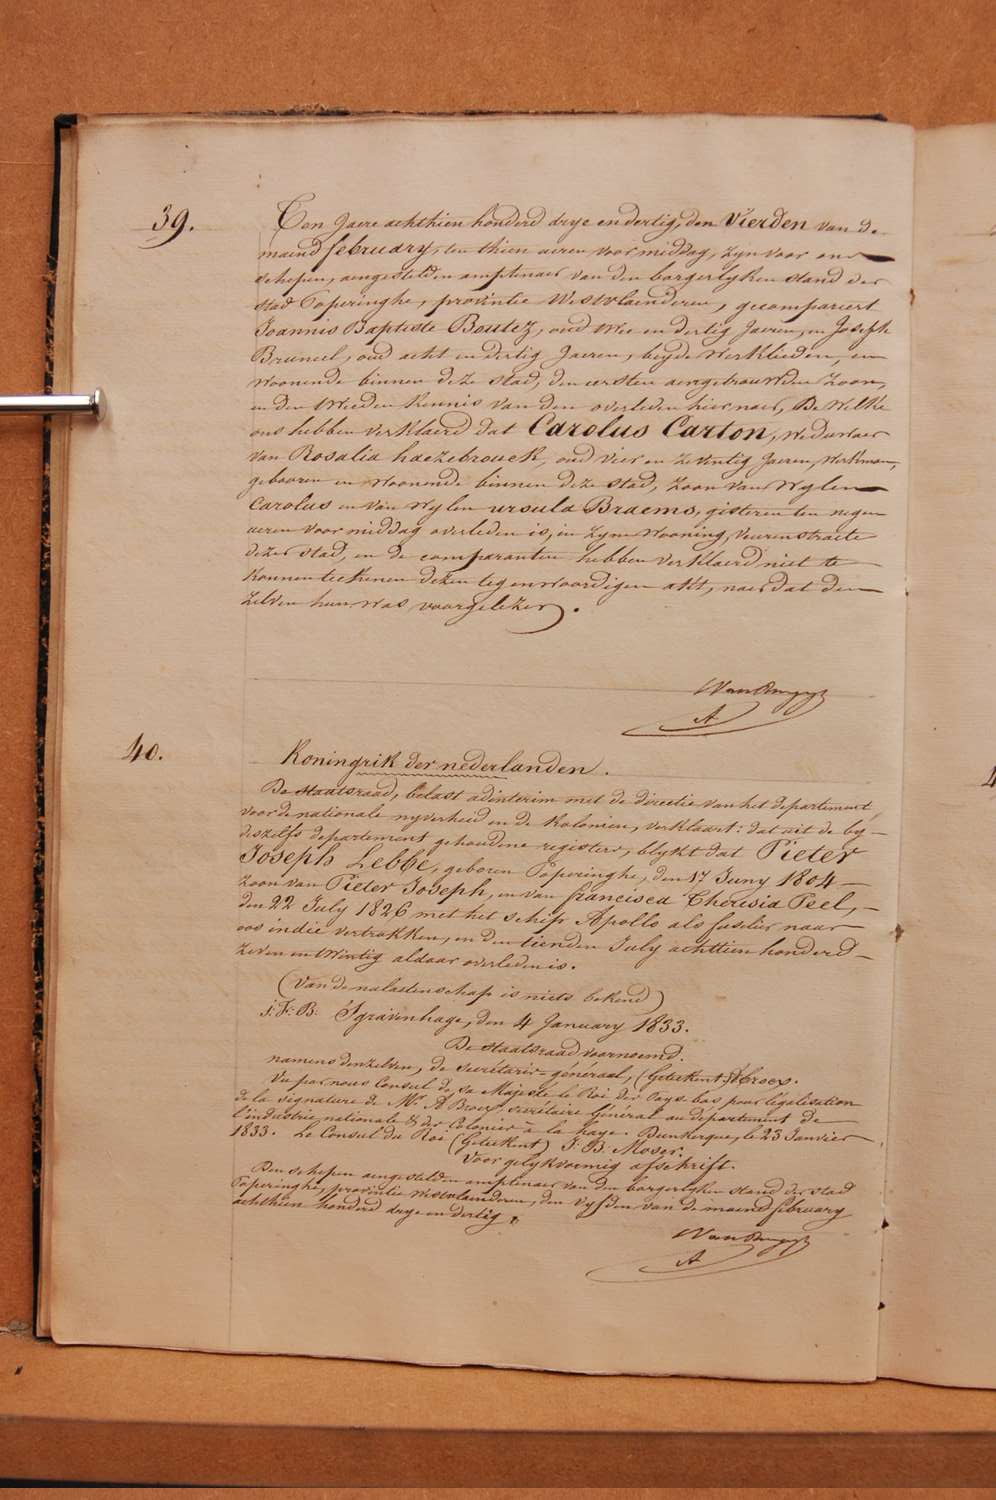 39.
Ten Jaere achthien honderd drye en dertig, den Vierden van de
maend february, ten thien ueren voormiddag, zyn voor ons
schepen, aengestelden amptenaer van den borgerlyken stand der
stad Poperinghe, provintie Westvlaenderen, gecompareert
Joannis Baptiste Boutez, oud twee en dertig Jaeren, en Joseph
Bruneel, oud acht en dertig Jaeren, beyde Werklieden, en
woonende binnen deze stad, den eersten aengetrouwden Zoon,
en den tweeden Kennis van den overleden hier naer, De Welke
ons hebben verklaerd dat Carolus Carton, Weduwaer
van Rosalia haezebrouck, oud vier en zeventig Jaeren, Werkman,
gebooren en woonende binnen deze stad, Zoon van Wylen
Carolus en van Wylen ursula Braems, gisteren ten negen
ueren voormiddag overleden is, in zyne Wooning, Veurenstraete
dezer stad, en de comparanten hebben verklaerd niet te
konnen teekenen dezen tegenwoordigen akt, naer dat den
zelven hun was voorgelezen.
A
40.
Koningrik der nederlanden.
De staatsraad, belast adinterim met de directie van het departement
voor de nationale nyverheid en de Kolonien, verklaart: dat uit de by
deszelfs departement gehoudene registers, blykt dat Pieter
Joseph Lebbe, geboren Poperinghe, den 17 Juny 1804
zoon van Pieter Joseph, en van francisca Theresia Peel,
den 22 July 1826 met het schip Apollo als fuselier naar
oos indie vertrokken, en den tienden July achttien honderd
zeven en twintig aldaar overleden is.
(Van de nalaetenschap is niets bekend)
j: F: B: S'gravenhage, den 4 January 1833.
De staatsraad voornoemd.
namens denzelven, de secrétaris-général, (Geteekent:) A Broex.
Vu par nous Consul de sa Majesté le Roi des Pays bas pour légalisation
de la signature de Mr. A Broex secrétaire Général au département de
l'industrie nationale & des Colonies à la haye. Dunkerque, le 23 Janvier
1833. Le Consul du Roi (Geteekent) J: B: Moser.
Voor gelykvormig afschrift.
Den schepen aengestelden amptenaer van den borgerlyken stand der stad
Poperinghe, provintie Westvlaenderen, den vyfden van de maend february
achthien honderd drye en dertig.
A